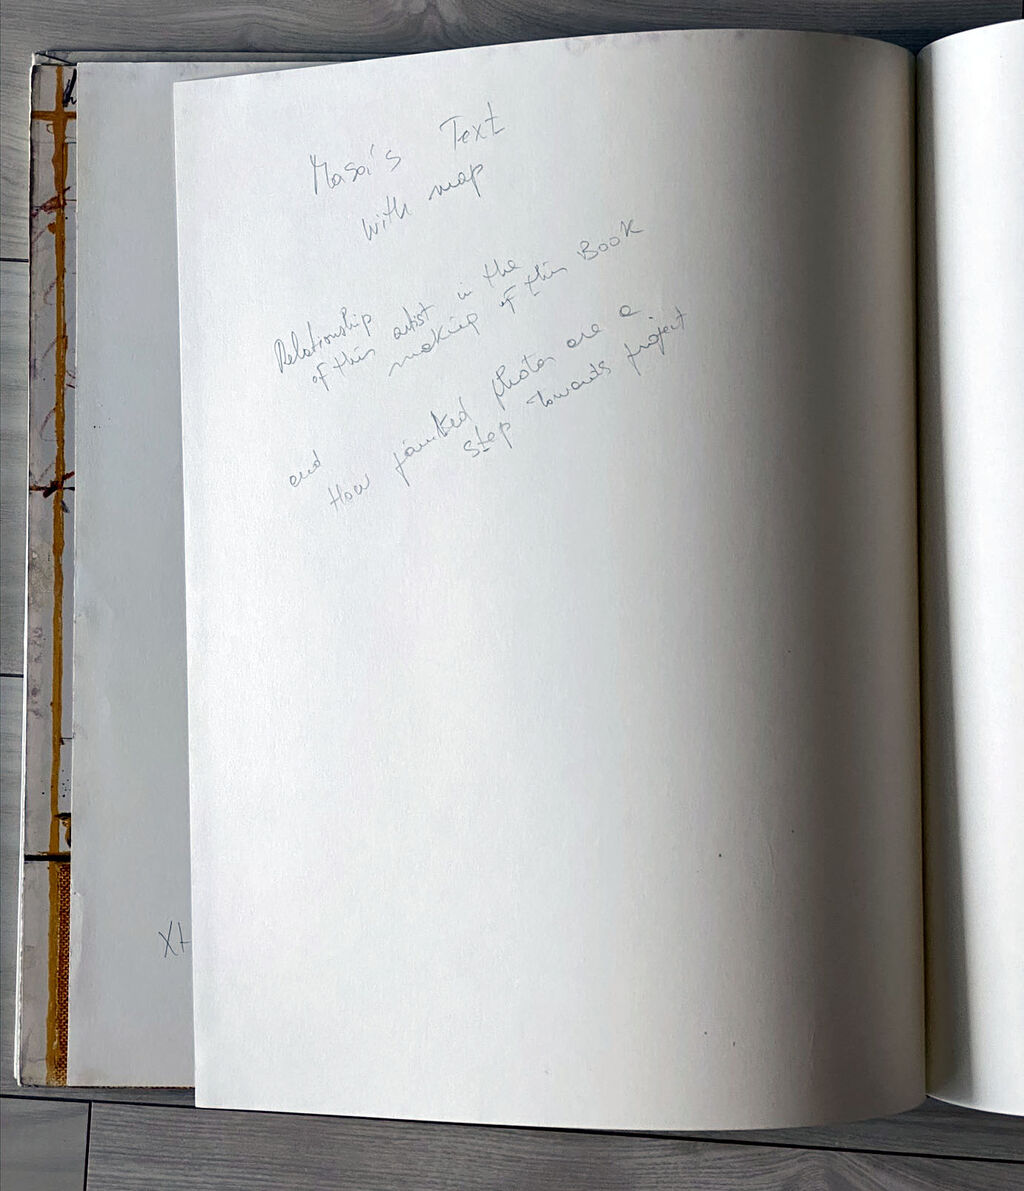 Masai's Text
with map
Relationship in the
of this artist
making of this Book
and
How painted photos are a
step towards project
XH